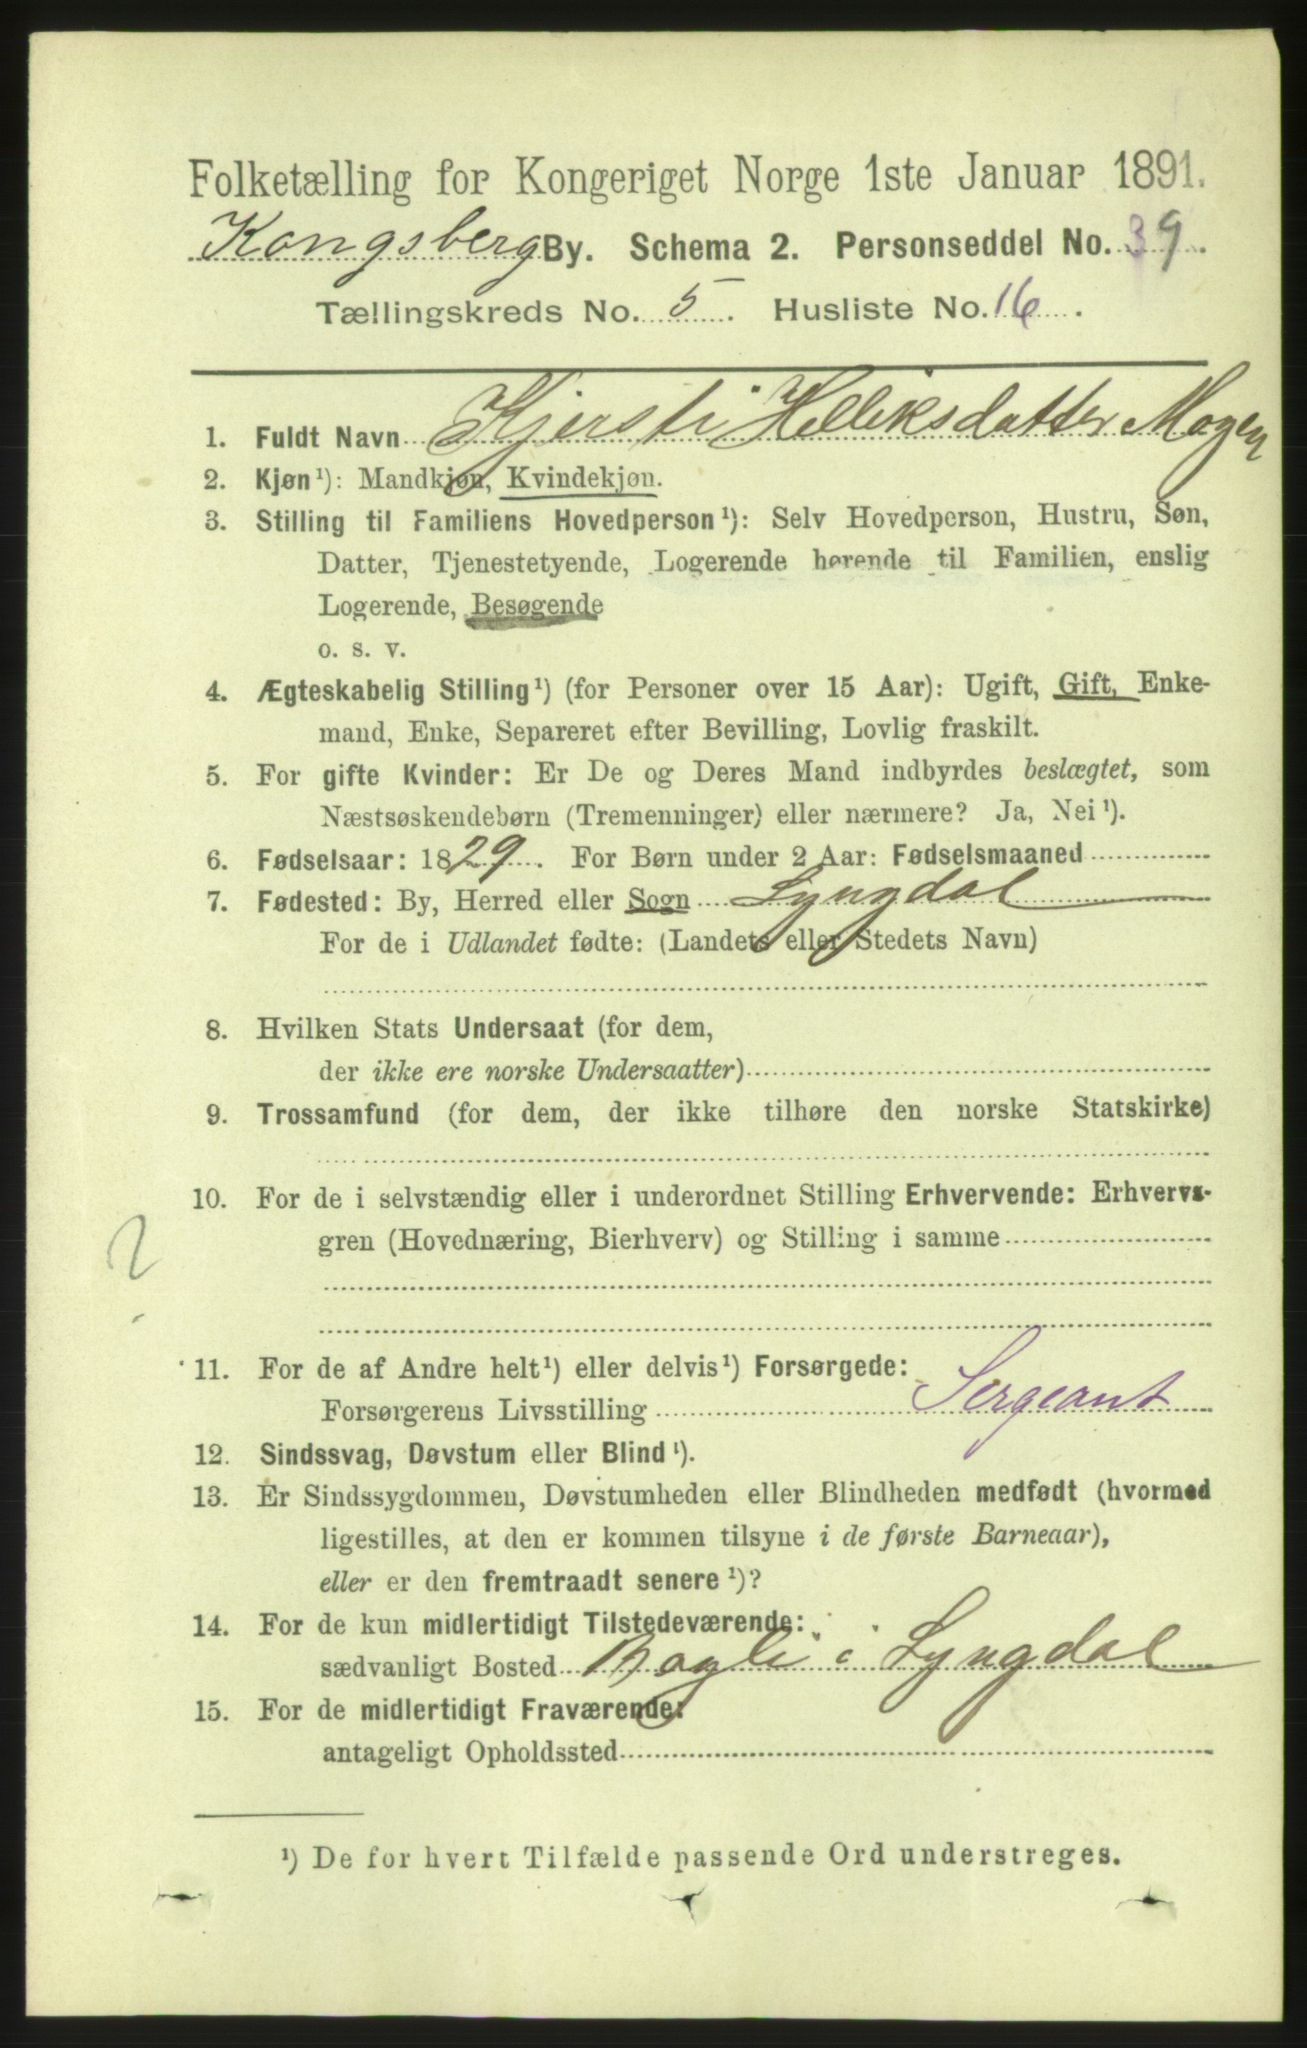 Folketælling for Kongeriget Norge 1ste Januar 1891.
Kongsberg By. Schema 2. Personseddel No. 39.
Tællingskreds No. 5. Husliste No. 16.
1. Fuldt Navn Kjersti Helleksdatter Mogen
2. Kjøn¹): Mandkjøn, Kvindekjøn.
3. Stilling til Familiens Hovedperson¹): Selv Hovedperson, Hustru, Søn,
Datter, Tjenestetyende, Logerende hørende til Familien, enslig
Logerende, Besøgende
o. s. v.
4. Ægteskabelig Stilling¹) (for Personer over 15 Aar): Ugift, Gift, Enke-
mand, Enke, Separeret efter Bevilling, Lovlig fraskilt.
5. For gifte Kvinder: Er De og Deres Mand indbyrdes beslægtet, som
Næstsøskendebørn (Tremenninger) eller nærmere? Ja, Nei¹).
6. Fødselsaar: 1829. For Børn under 2 Aar: Fødselsmaaned
7. Fødested: By, Herred eller Sogn Lyngdal
For de i Udlandet fødte: (Landets eller Stedets Navn)
8. Hvilken Stats Undersaat (for dem,
der ikke ere norske Undersaatter)
9. Trossamfund (for dem, der ikke tilhøre den norske Statskirke)
10. For de i selvstændig eller i underordnet Stilling Erhvervende: Erhvervs-
gren (Hovednæring, Bierhverv) og Stilling i samme
?
11. For de af Andre helt¹) eller delvis¹) Forsørgede:
Forsørgerens Livsstilling Sergeant
12. Sindssvag, Døvstum eller Blind¹).
13. Er Sindssygdommen, Døvstumheden eller Blindheden medfødt (hvormed
ligestilles, at den er kommen tilsyne i de første Barneaar),
eller er den fremtraadt senere¹)?
14. For de kun midlertidigt Tilstedeværende:
sædvanligt Bosted Bogli i Lyngdal
15. For de midlertidigt Fraværende:
antageligt Opholdssted
¹) De for hvert Tilfælde passende Ord understreges.